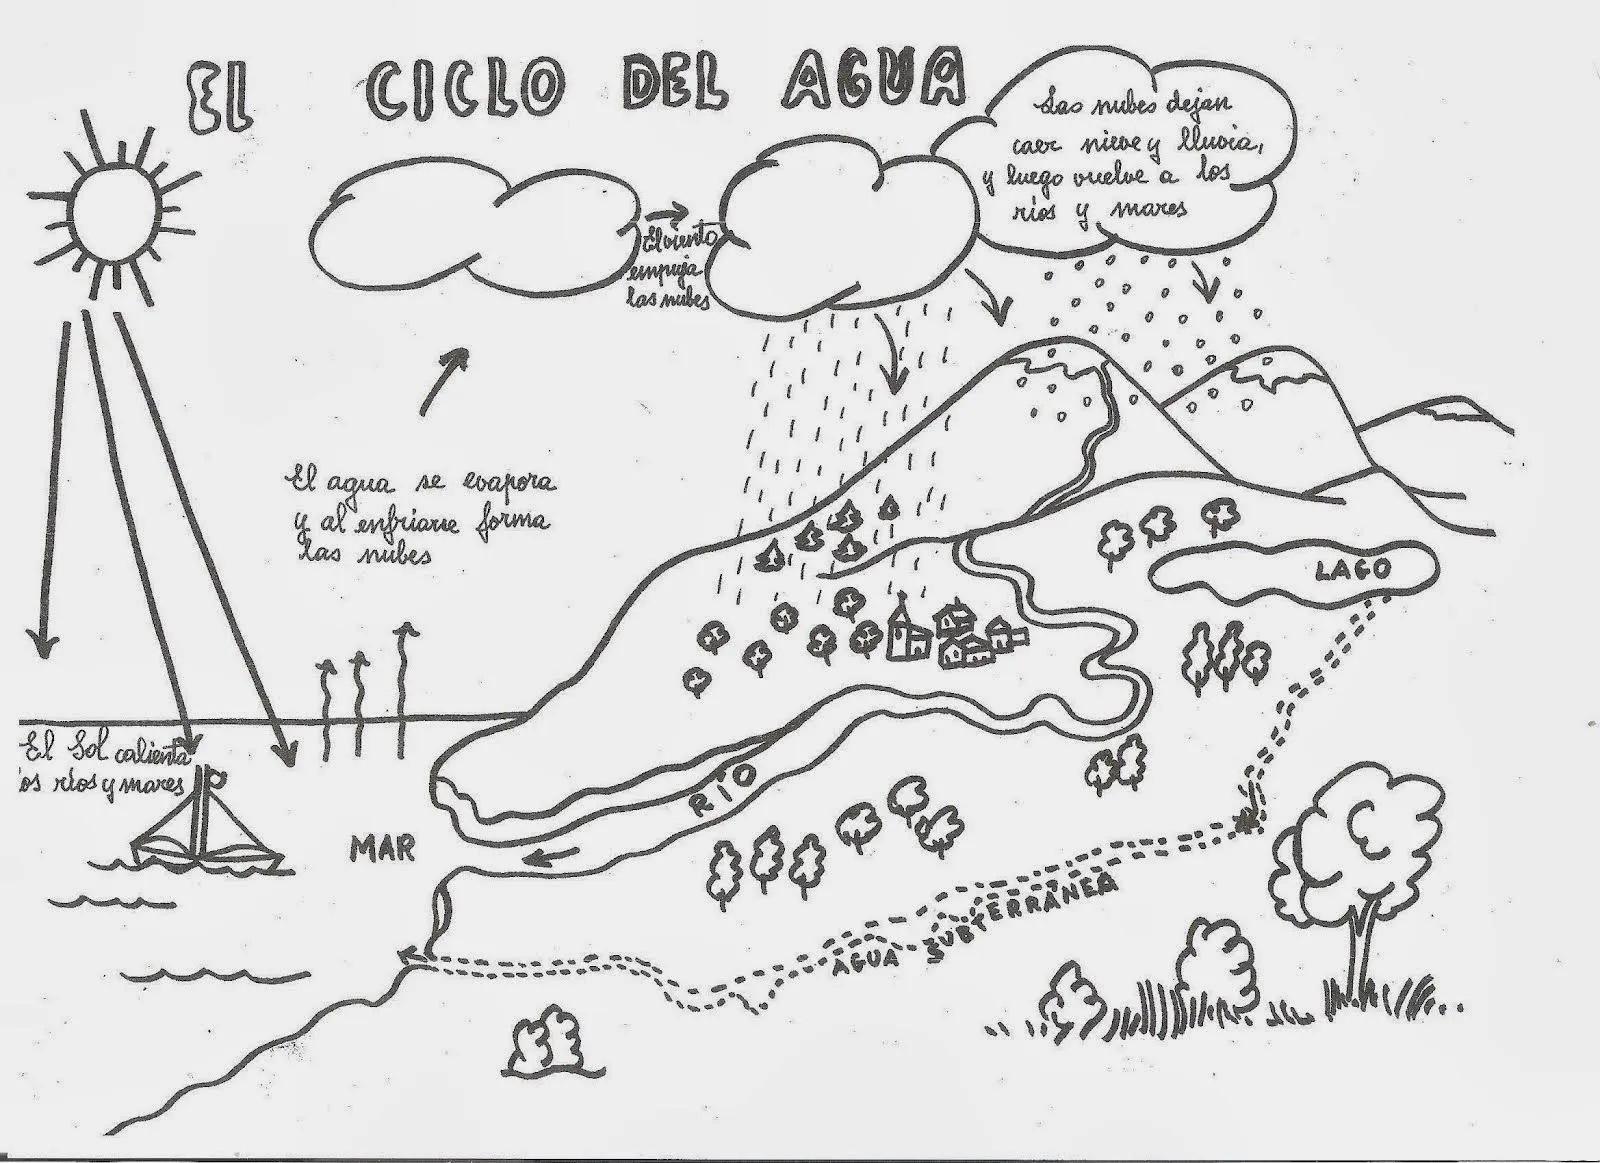 EL CICLO DEL AGUA
Las nubes dejan
caer nieve y lluvia,
y luego vuelve a los
ríos y mares
El viento
empuja
las nubes
El agua se evapora
y al enfriarse forma
las nubes
LAGO
El Sol calienta
los ríos y mares
RÍO
MAR
AGUA SUBTERRÁNEA